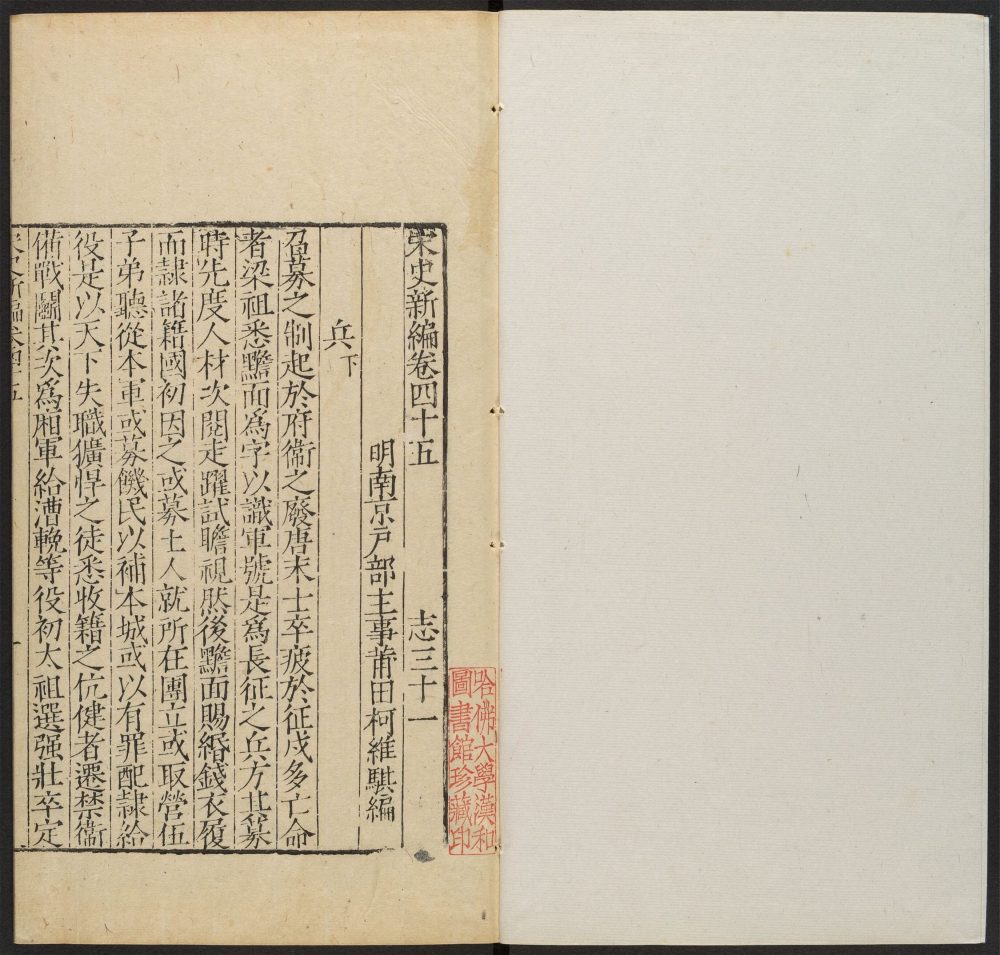 宋史新編卷四十五 志三十一
明南京戸部主事莆田柯維騏編
兵下
召募之制起於府衞之廢唐末士卒疲於征戍多亡命
者梁祖悉黵面爲字以識軍號是爲長征之兵方其募
時先度人材次閱走躍試瞻視然後黵面賜緡錢衣履
而隷諸籍國初因之或募土人就所在團立或取營伍
子弟聽從本軍或募饑民以補本城或以有罪配隷給
役是以天下失職獷悍之徒悉收籍之伉健者遷禁衞
備戰鬬其次爲厢軍給漕輓等役初太祖選强壯卒定
宋史新編卷四十五
哈佛大學漢和
圖書館珍藏印